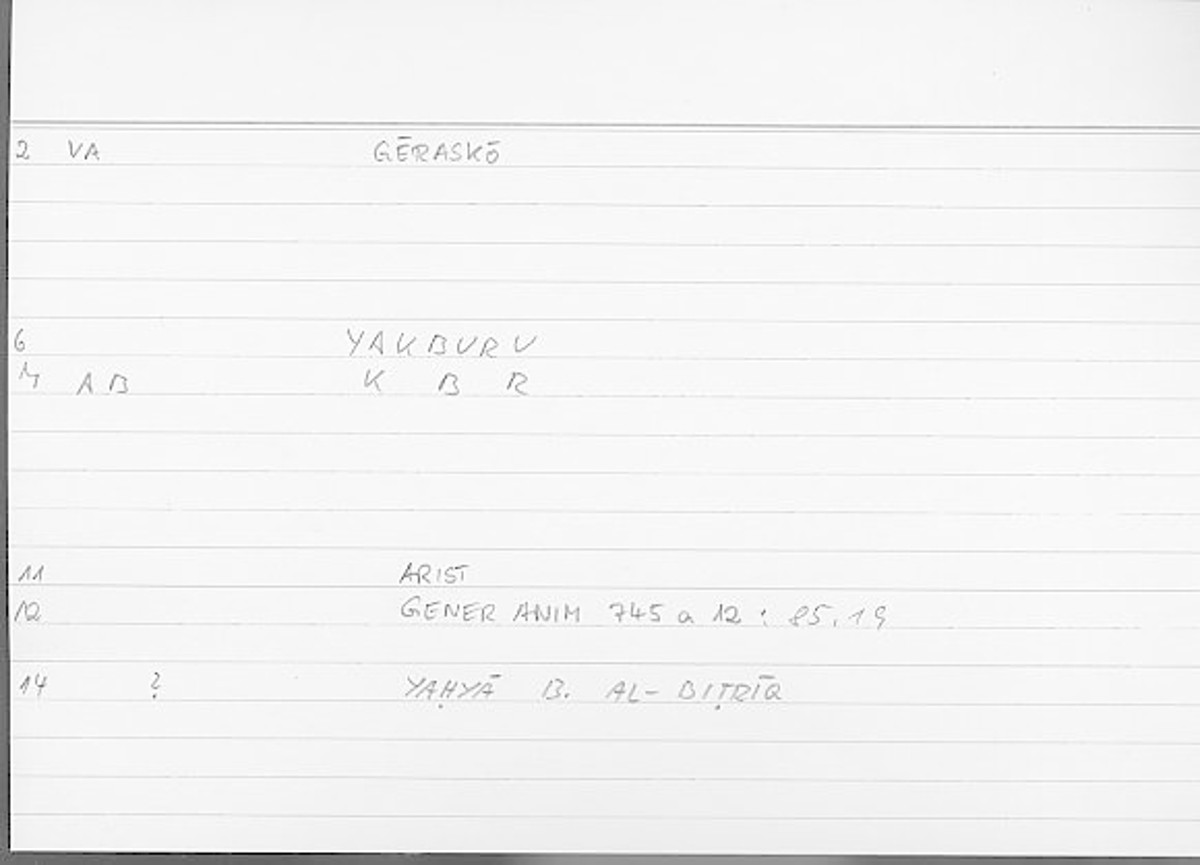 2 VA GĒRASKŌ
6 YAKBURU
M AB K B R
11 ARIST
12 GENER ANIM 745 a 12 : 85.19
14 ? YAḤYĀ B. AL-BIṬRĪQ